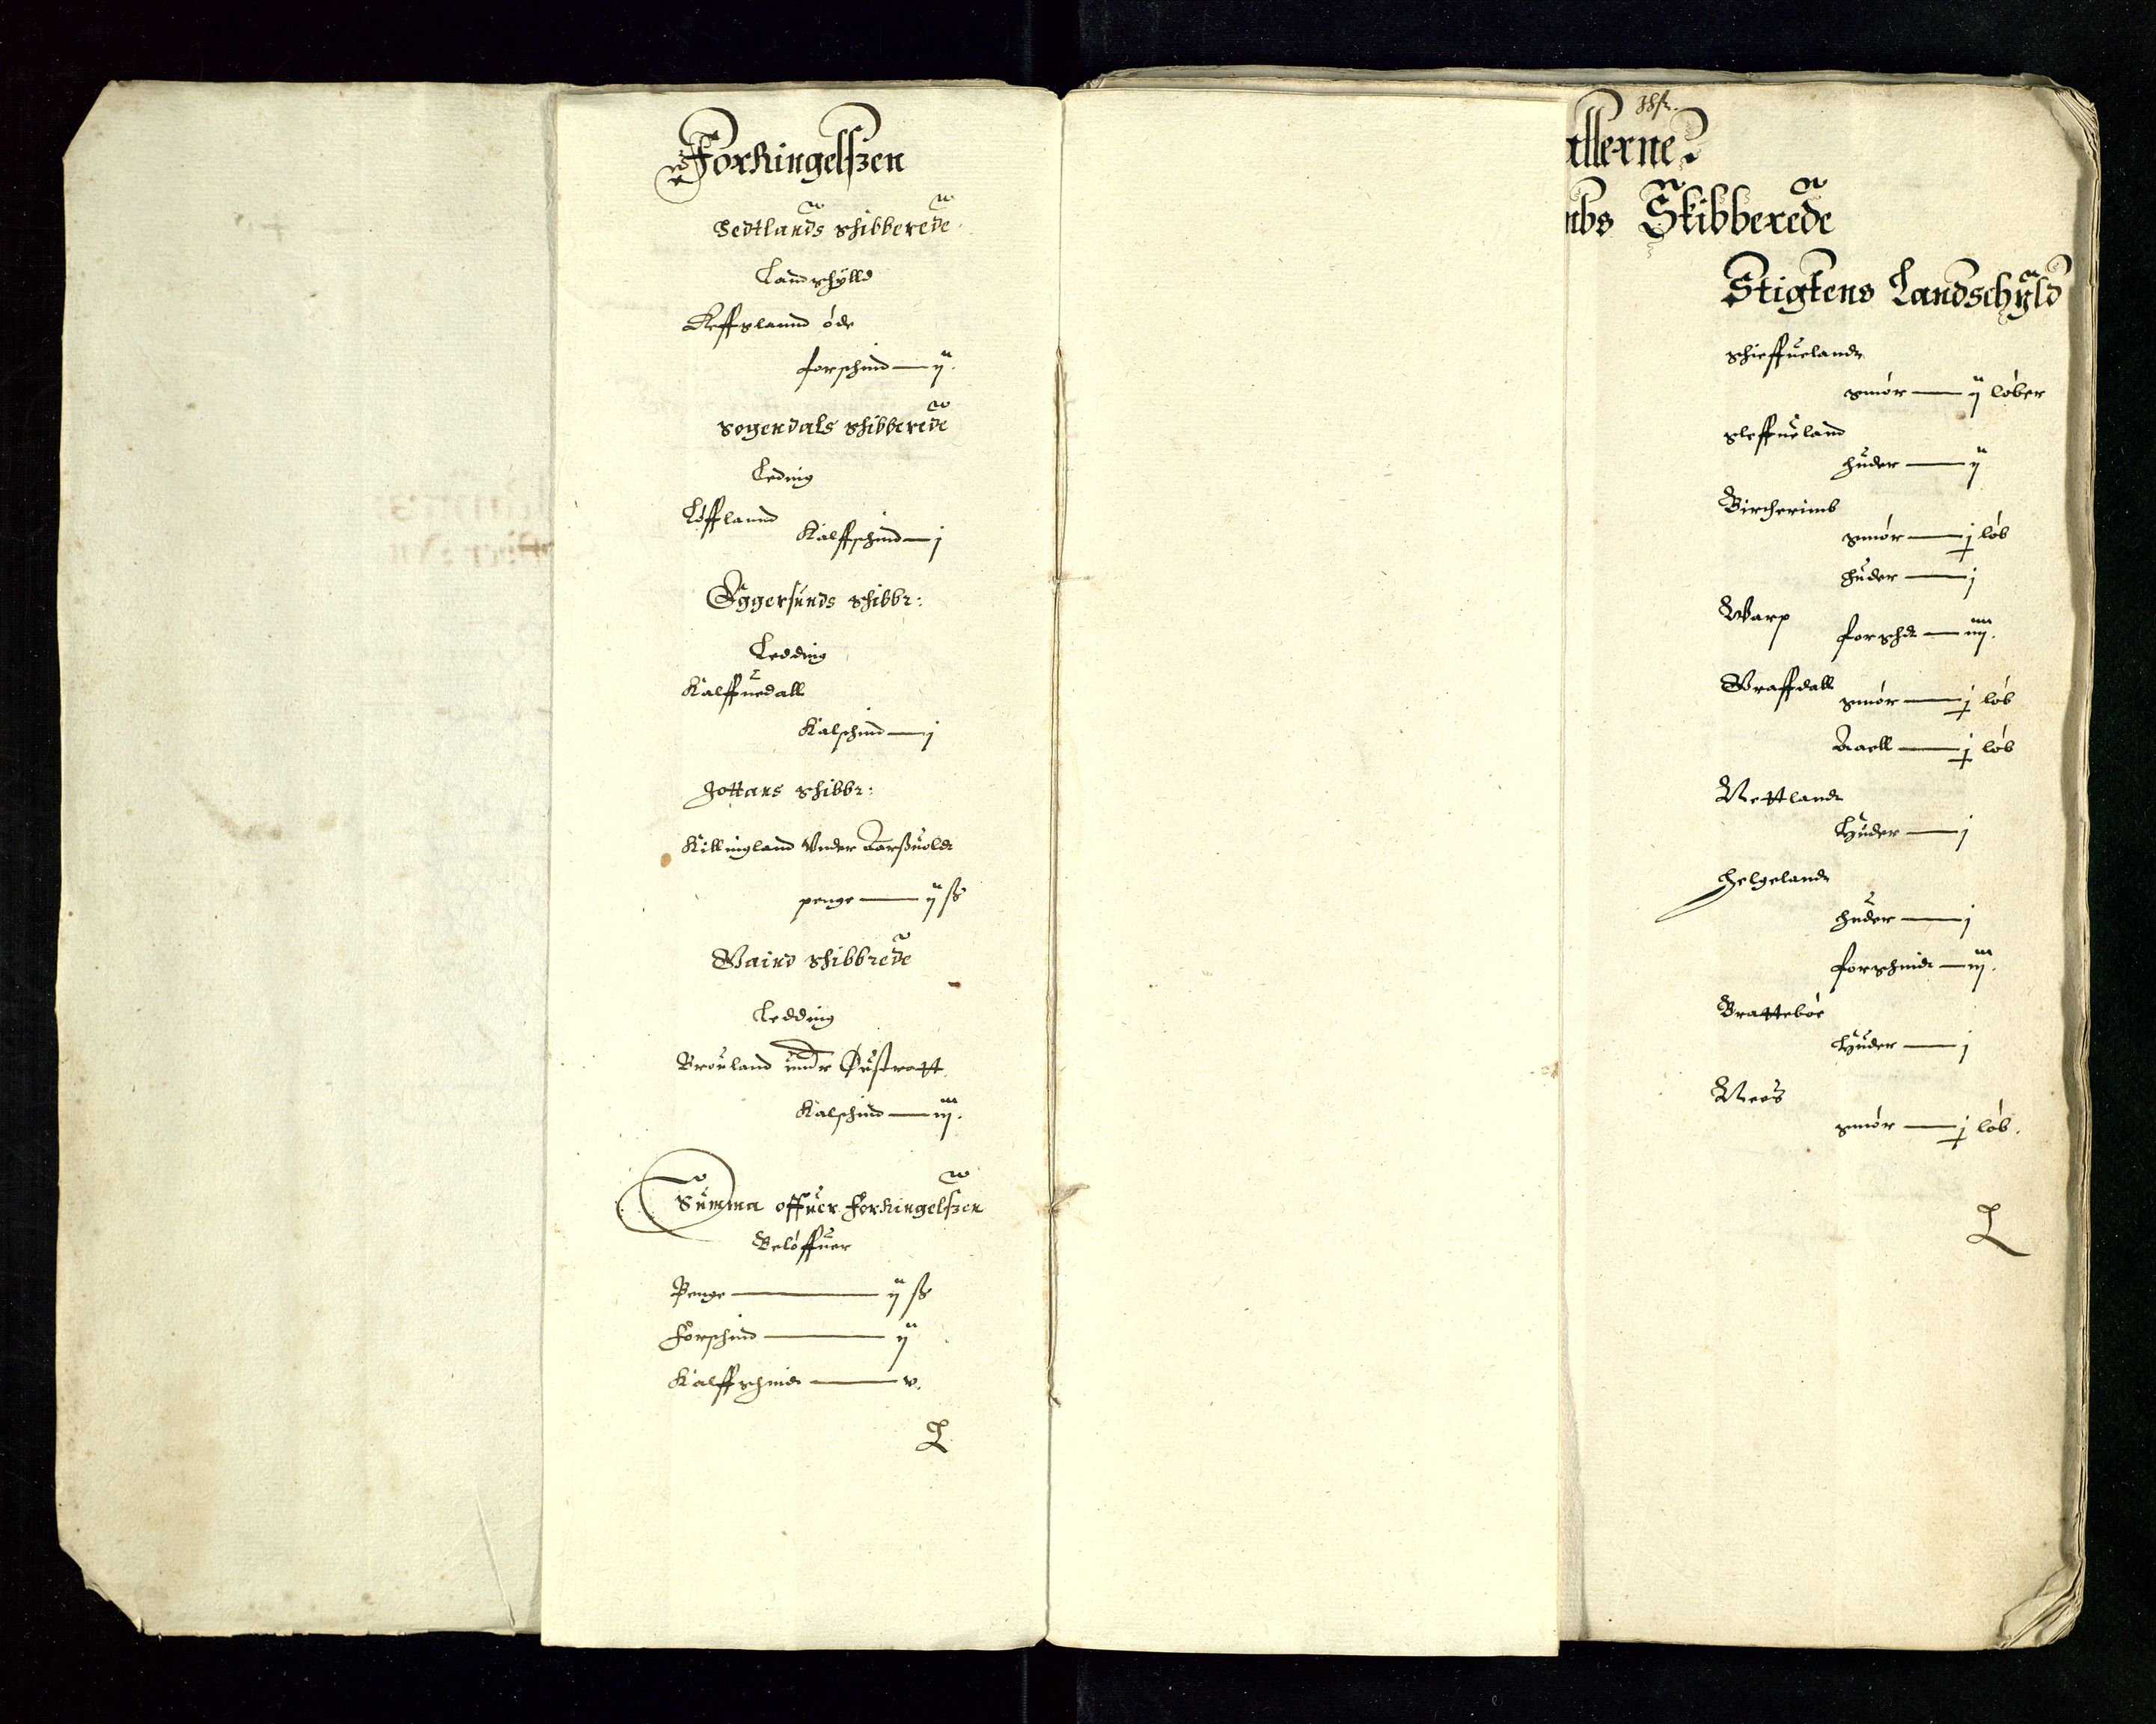 Forkingelszen
Sedtlands skibberede
Landskylld
Refsland øde
forskind — ij
Sogendals skibberede
Leding
Løffland
Kalffskind — j
Eggersunds skibbr:
Ledding
Kalffuedall
Kalskind — j
Jottans skibbr:
Killingland Vnder Aarsuold
penge — ij ß
skibbrede
Ledding
Brouland undr Østratt
Kalskind — iij.
Summa offuer Forkingelszen
Beløffuer
Penge — ij ß
Forskind — ij
Kalffskind — v.
allerne
mbs Skibberede
Stigtens Landschyld
Skieffueland
smør — ij løber
Sleffueland
huder — ij
Bircherimb
smør — j løb
huder — j
Warp
forskd — iiij.
Graffdall
smør — j løb
j løb
Nettland
Huder — j
Helgeland
huder — j
forskind — iij.
Brattebøe
Huder — j
Nees
smør — j løb.